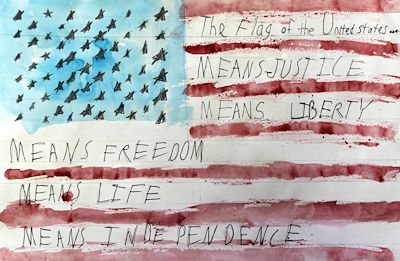 The Flag of the United States...
MEANS JUSTICE
MEANS LIBERTY
MEANS FREEDOM
MEANS LIFE
MEANS INDEPENDENCE